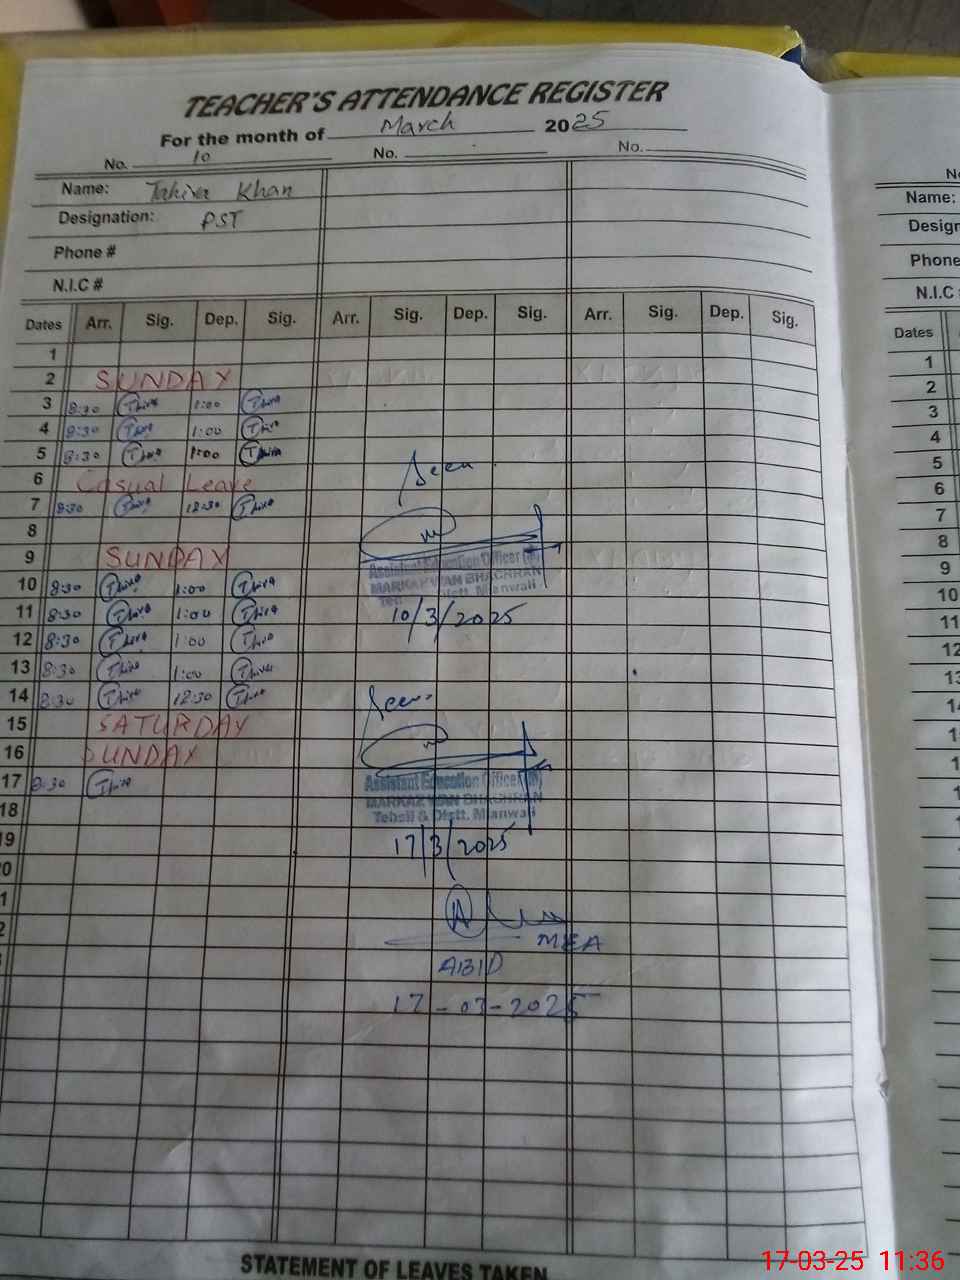 TEACHER'S ATTENDANCE REGISTER
For the month of March 2025
No. 10 No. No.
Name: Tahira Khan
Designation: PST
Phone #
N.I.C #
Dates Arr. Sig. Dep. Sig. Arr. Sig. Dep. Sig. Arr. Sig. Dep. Sig.
1
2 SUNDAY
3 8:30 1:00
4 8:30 1:00
5 8:30 1:00
6 Casual Leave
7 8:30 12:30
8
9 SUNDAY
10 8:30 1:00
11 8:30 1:00
12 8:30 1:00
13 8:30 1:00
14 8:30 12:30
15 SATURDAY
16 SUNDAY
17 8:30
18
19
Seen
Assistant Education Officer
MARKAZ WAN BHACHRAN
Distt. Mianwali
10/3/2025
Seen
Assistant Education Officer
MARKAZ WAN BHACHRAN
Tehsil & Distt. Mianwali
17/3/2025
MEA
ABID
17-03-2025
STATEMENT OF LEAVES TAKEN
Name:
Phone
N.I.C
Dates
1
2
3
4
5
6
7
8
9
10
11
12
17-03-25 11:36